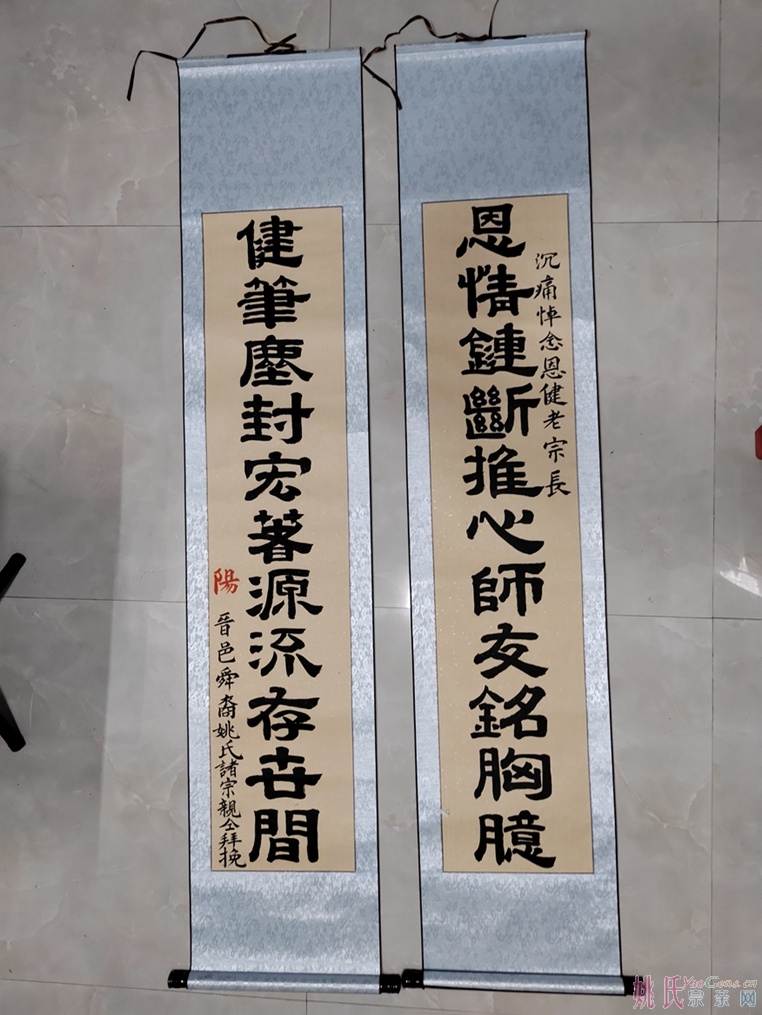 沉痛悼念恩健老宗長
恩情鏈斷推心師友銘胸臆
健筆塵封宏著源流存世間
陽
晉邑舜裔姚氏諸宗親仝拜挽
姚氏宗亲网
YaoGens.cn